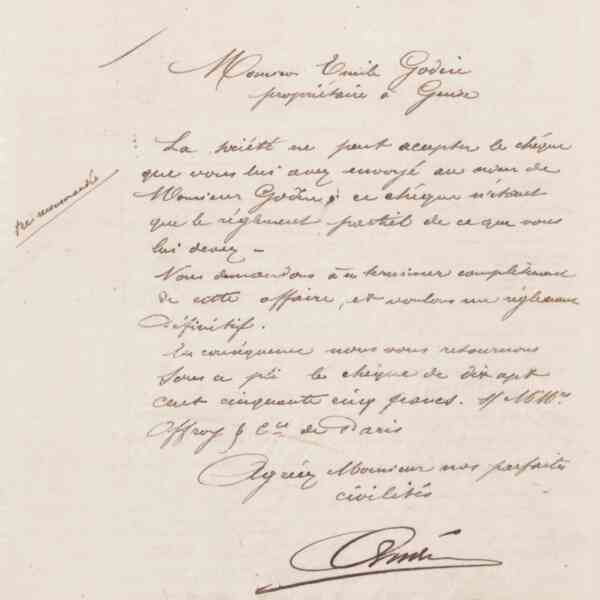 Monsieur Emile Godin
propriétaire à Guise
recommandé
La Société ne peut accepter le chèque
que vous lui avez envoyé au nom de
Monsieur Godin, ce chèque n'étant
que le règlement partiel de ce que vous
lui devez -
Nous demandons à en terminer complètement
de cette affaire, et voulons un règlement
définitif.
En conséquence nous vous retournons
sous ce pli le chèque de dix sept
cent cinquante cinq francs. s/ MMrs
Affroy & Cie de Paris
Agréez Monsieur nos parfaites
civilités